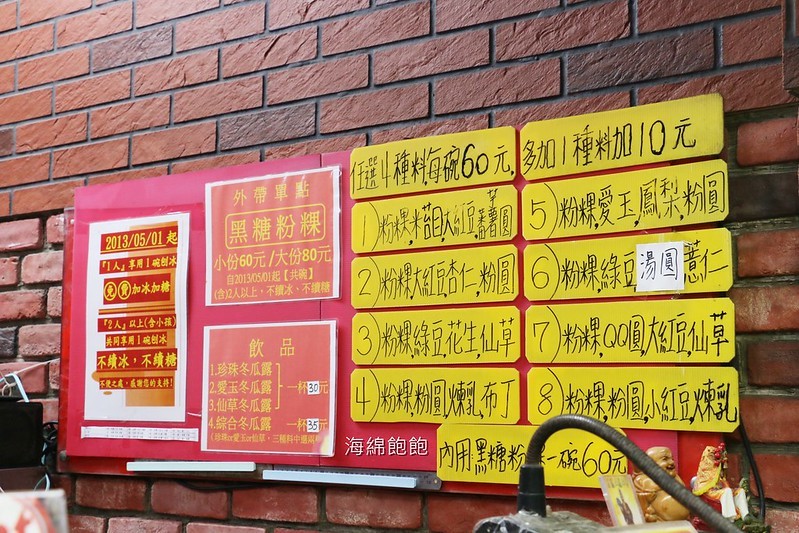 2013/05/01 起
『1人』享用1碗刨冰
免費加冰加糖
『2人』以上(含小孩)
共同享用1碗刨冰
不續冰,不續糖
不便之處,感謝您的支持!
外帶單點
黑糖粉粿
小份60元/大份80元
自2013/05/01起【共碗】
(含)2人以上,不續冰、不續糖
飲品
1.珍珠冬瓜露
2.愛玉冬瓜露
3.仙草冬瓜露
一杯30元
4.綜合冬瓜露 一杯35元
任選4種料,每碗60元,
1)粉粿,米苔目,大紅豆,蕃薯圓
2)粉粿,大紅豆,杏仁,粉圓
3)粉粿,綠豆,花生,仙草
4)粉粿,粉圓,煉乳,布丁
多加1種料加10元
5)粉粿,愛玉,鳳梨,粉圓
6)粉粿,綠豆湯圓薏仁
7)粉粿,QQ圓,大紅豆,仙草
8)粉粿,粉圓,小紅豆,煉乳
內用黑糖粉 一碗60元
海綿飽飽